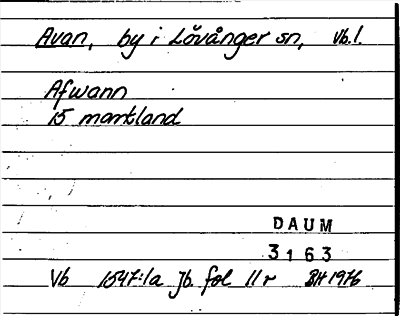 Avan, by i Lövånger sn, Vb.l.
Afwann
15 mantland
DAUM
3163
Vb 1547:1a Jb. fol 11 r BH 1976